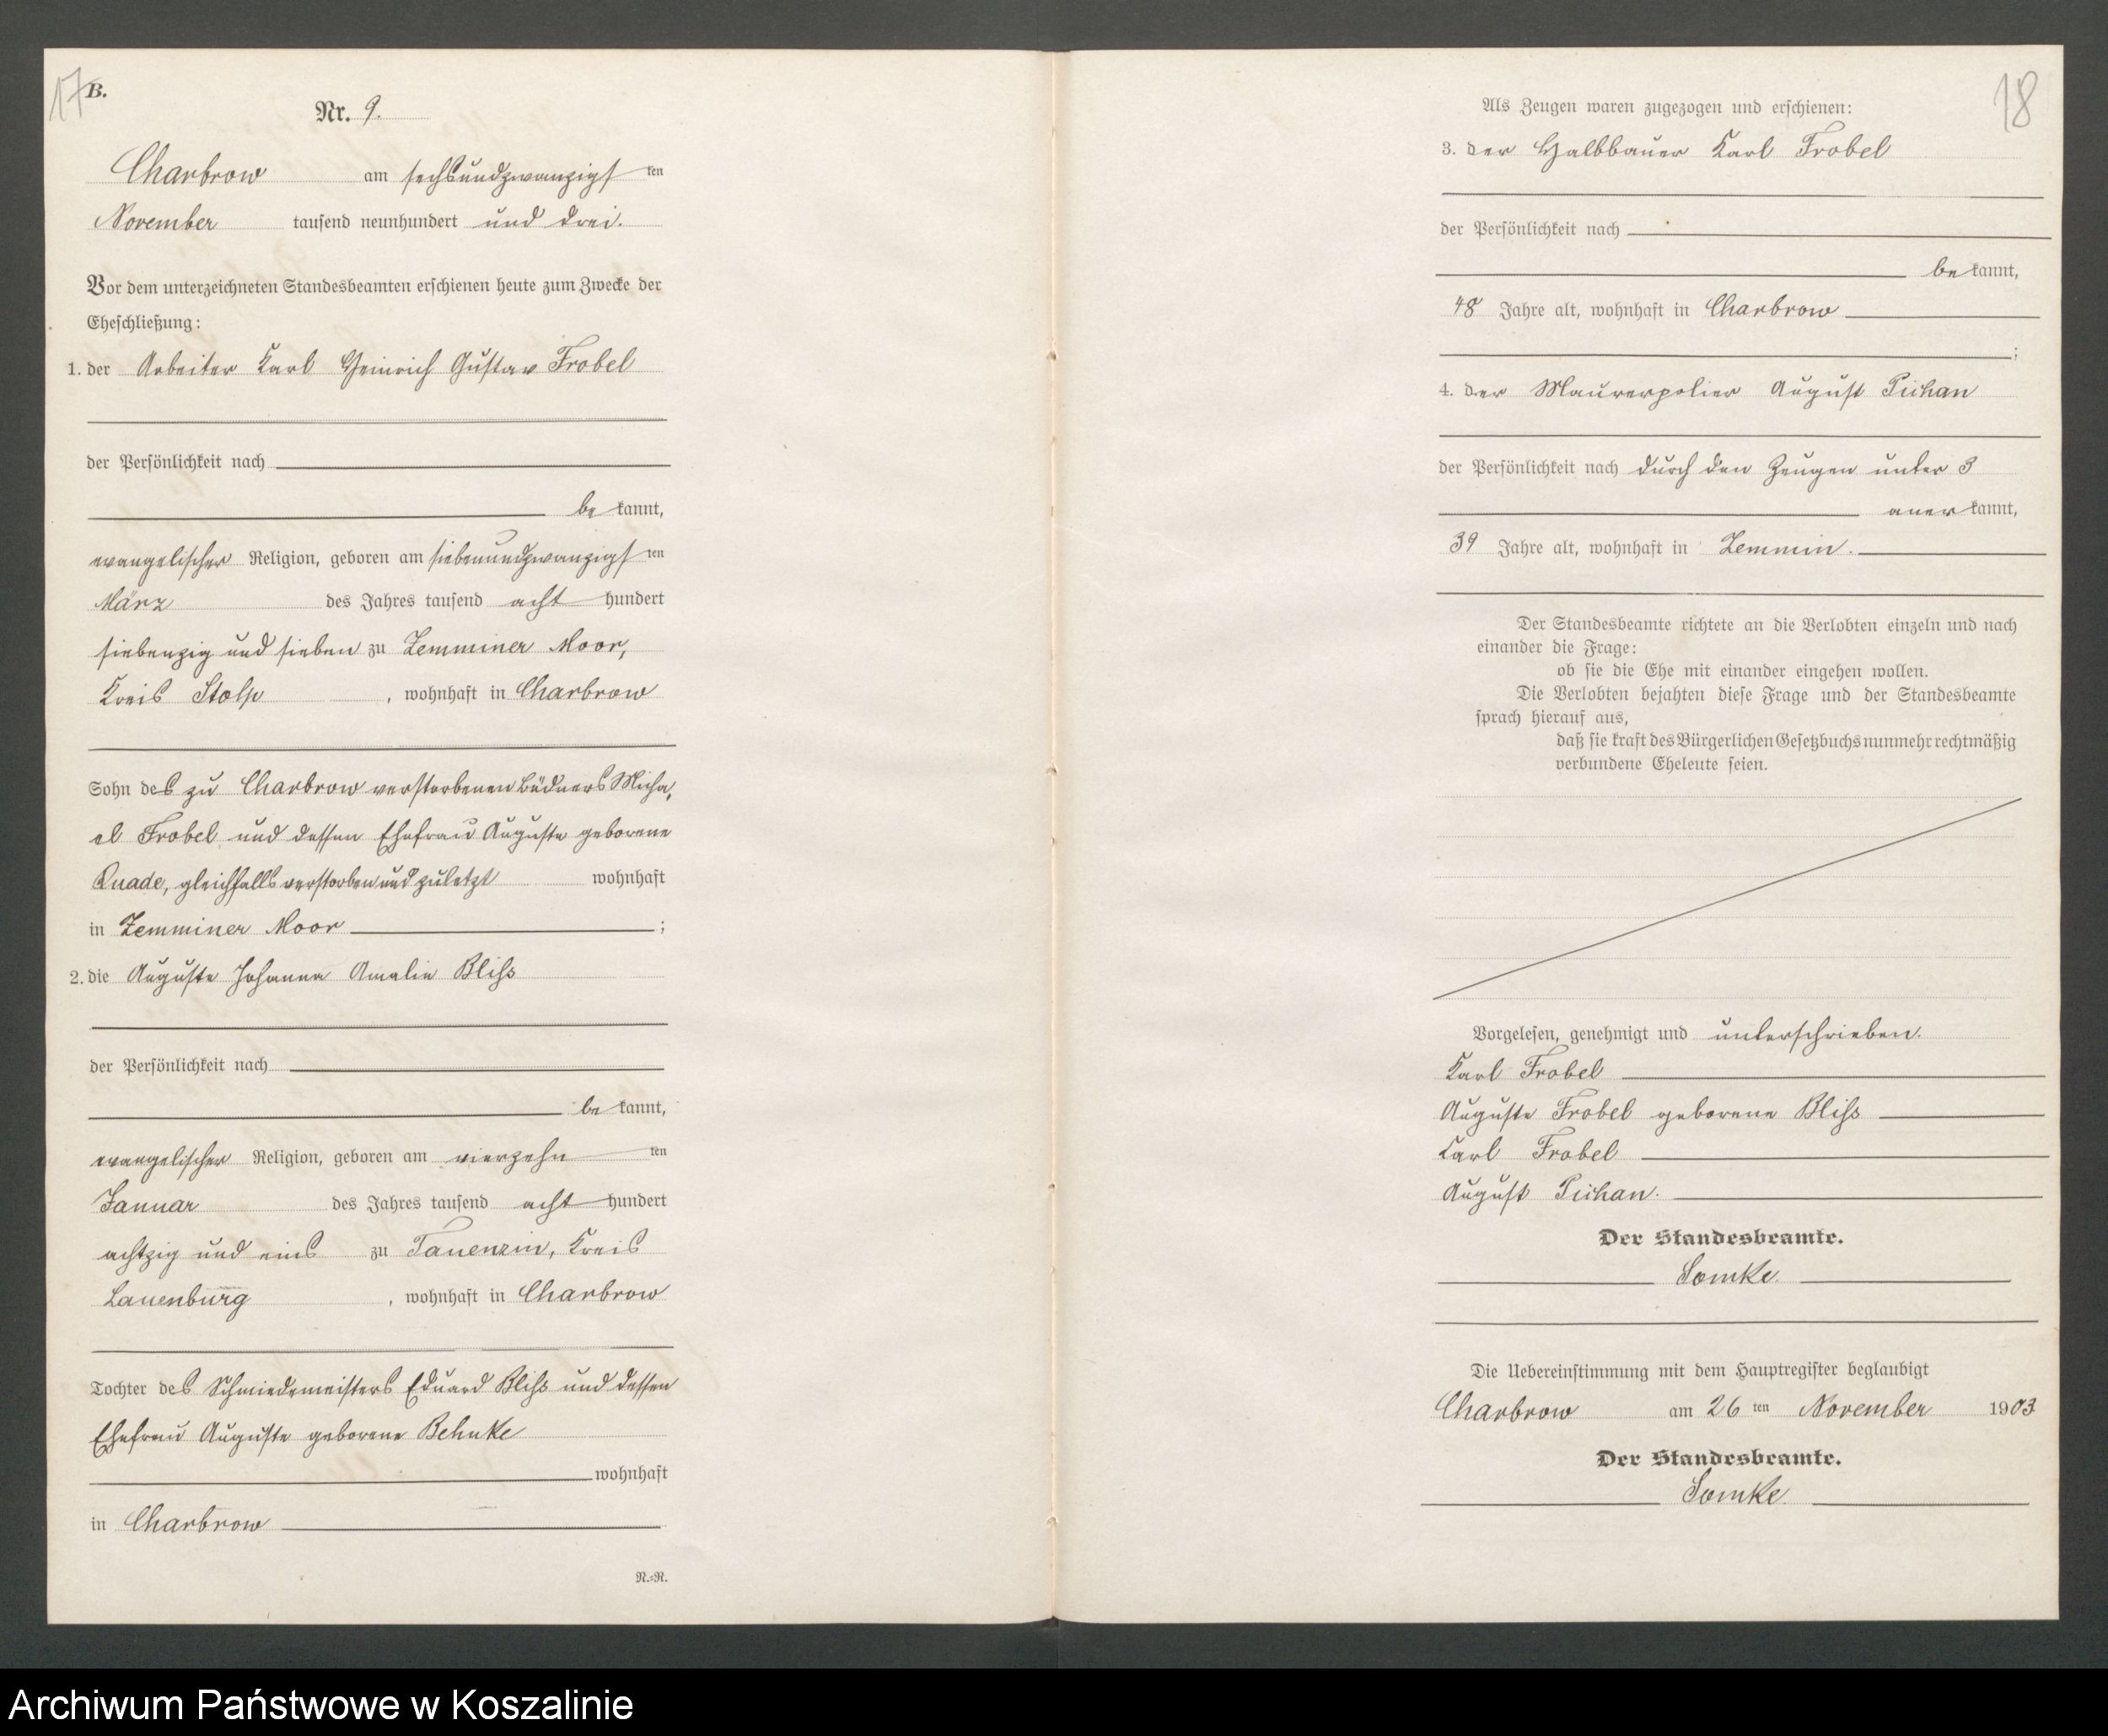 17
B.
Nr. 9.
Charbrow am sechsundzwanzigsten
November tausend neunhundert und drei.
Vor dem unterzeichneten Standesbeamten erschienen heute zum Zwecke der
Eheschließung:
1. der Arbeiter Karl Heinrich Gustav Frobel
der Persönlichkeit nach
bekannt,
evangelischer Religion, geboren am siebenundzwanzigsten
März des Jahres tausend acht hundert
siebenzig und sieben zu Zemminer Moor,
Kreis Stolp, wohnhaft in Charbrow
Sohn des zu Charbrow verstorbenen Büdners Micha,
el Frobel und dessen Ehefrau Auguste geborene
Quade, gleichfalls verstorben und zuletzt wohnhaft
in Zemminer Moor ;
2. die Auguste Johanna Amalie Bliß
der Persönlichkeit nach
bekannt,
evangelischer Religion, geboren am vierzehnten
Januar des Jahres tausend acht hundert
achtzig und eins zu Tauenzin, Kreis
Lauenburg, wohnhaft in Charbrow
Tochter des Schmiedemeisters Eduard Bliß und dessen
Ehefrau Auguste geborene Behnke
wohnhaft
in Charbrow
N.-N.
18
Als Zeugen waren zugezogen und erschienen:
3. der Halbbauer Karl Frobel
der Persönlichkeit nach
bekannt,
48 Jahre alt, wohnhaft in Charbrow
;
4. der Maurerpolier August Pichan
der Persönlichkeit nach durch den Zeugen unter 3
anerkannt,
39 Jahre alt, wohnhaft in Zemmin.
Der Standesbeamte richtete an die Verlobten einzeln und nach
einander die Frage:
ob sie die Ehe mit einander eingehen wollen.
Die Verlobten bejahten diese Frage und der Standesbeamte
sprach hierauf aus,
daß sie kraft des Bürgerlichen Gesetzbuchs nunmehr rechtmäßig
verbundene Eheleute seien.
Vorgelesen, genehmigt und unterschrieben.
Karl Frobel
Auguste Frobel geborene Bliß
Karl Frobel
August Pichan.
Der Standesbeamte.
Somke
Die Uebereinstimmung mit dem Hauptregister beglaubigt
Charbrow am 26ten November 1903
Der Standesbeamte.
Somke
Archiwum Państwowe w Koszalinie